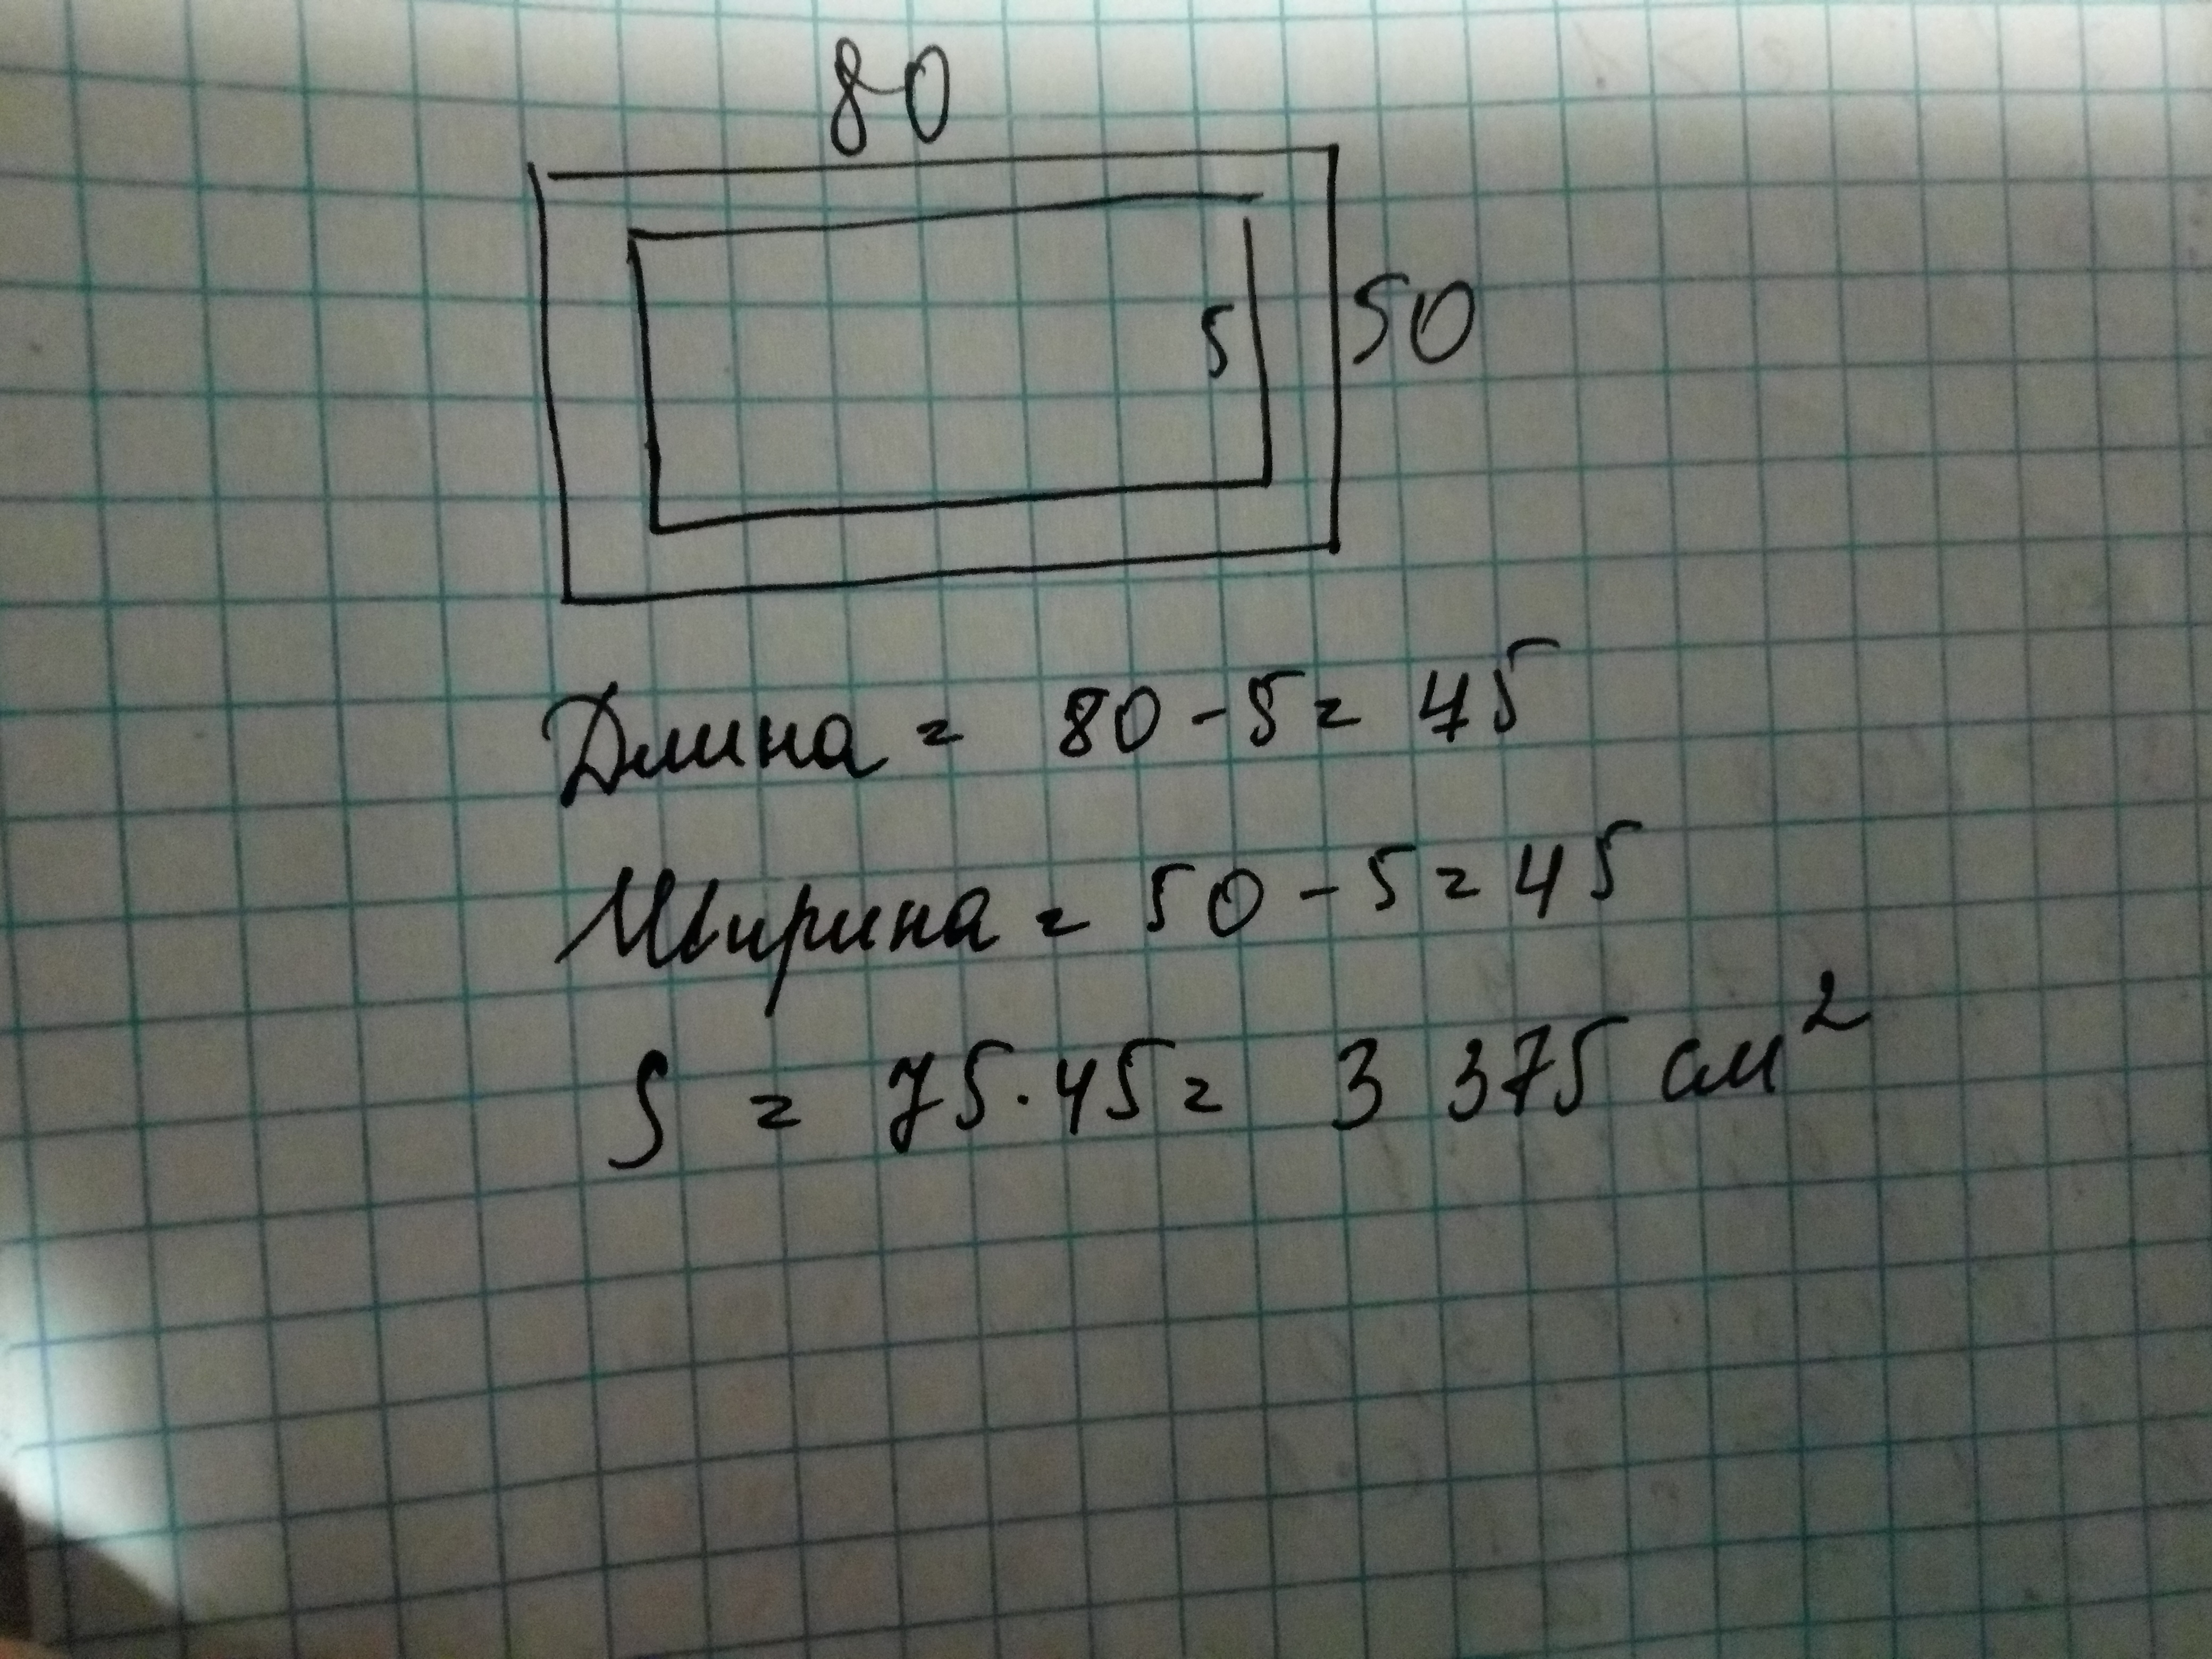 80
5
50
Длина = 80 - 5 = 45
Ширина = 50 - 5 = 45
S = 75 · 45 = 3 375 см²